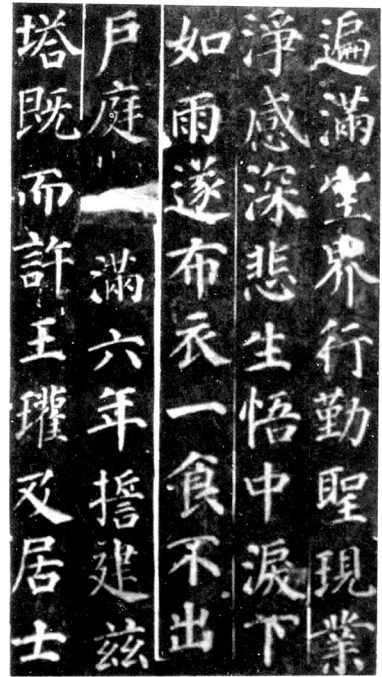 遍滿空界行勤聖現業
淨感深悲生悟中淚下
如雨遂布衣一食不出
戶庭滿六年誓建茲
塔既而許王瓘及居士